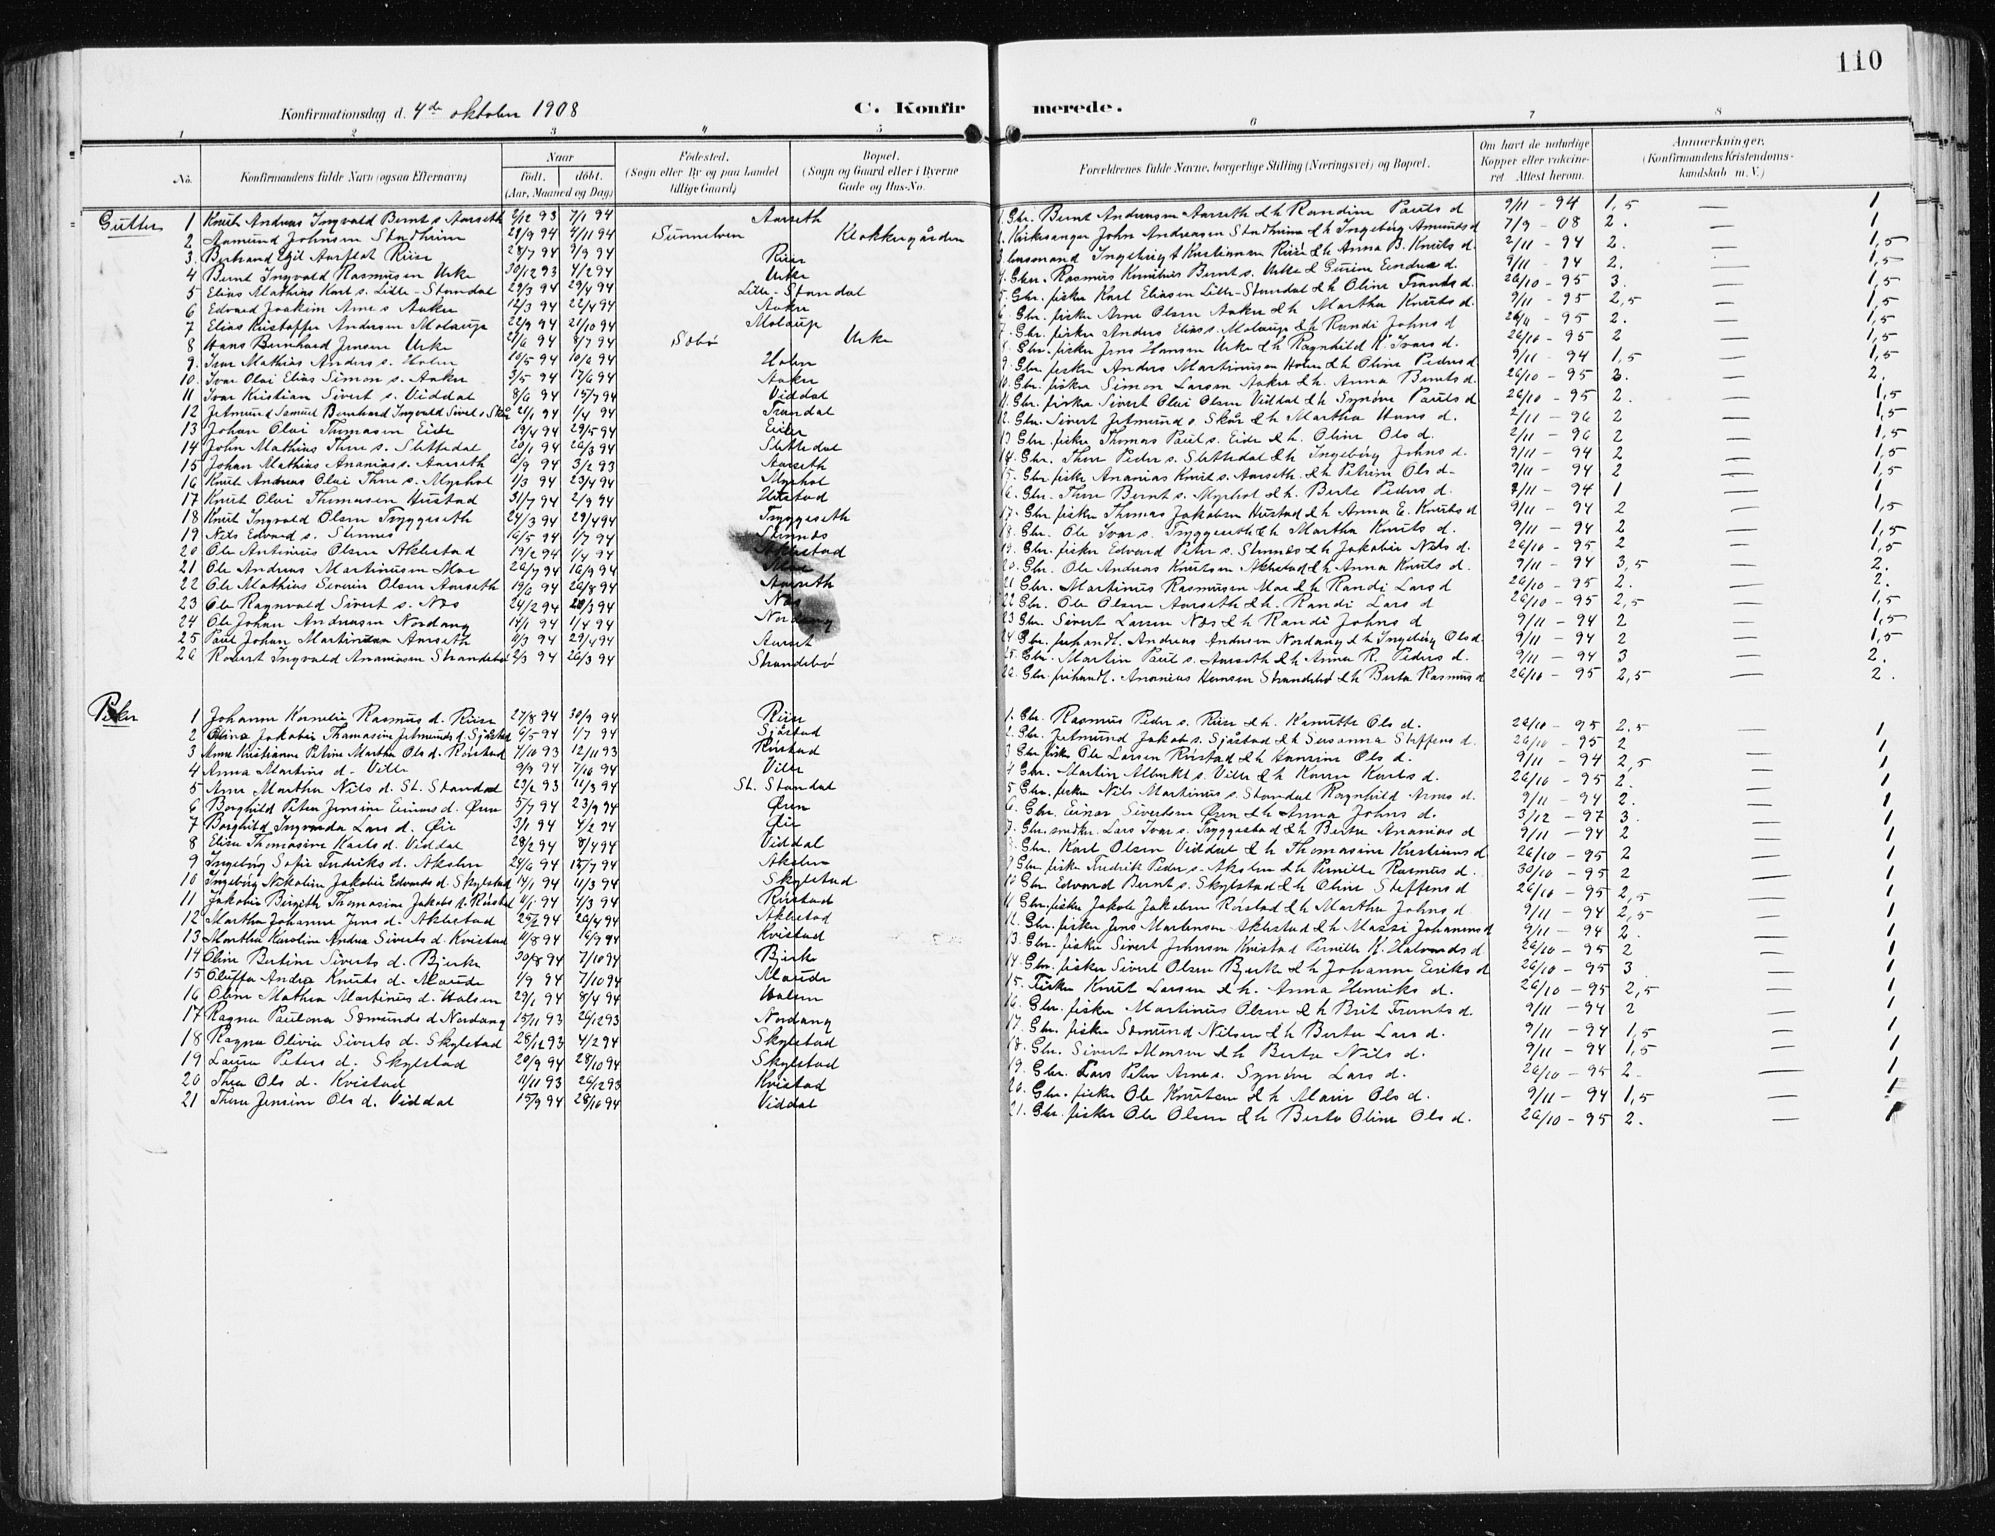 110
Konfirmationsdag d. 4de oktober 1908
C. Konfirmerede.
1 2 3 4 5 6 7 8
No. Konfirmandens fulde Navn (ogsaa Efternavn)
Naar
født. døbt.
(Aar, Maaned og Dag)
Fødested.
(Sogn eller By og paa Landet tillige Gaard)
Bopæl.
(Sogn og Gaard eller i Byerne Gade og Hus-No.
Forældrenes fulde Navne, borgerlige Stilling (Næringsvei) og Bopæl.
Om havt de naturlige Kopper eller vakcineret. Attest herom.
Anmærkninger.
(Konfirmandens Kristendomskundskab m. V.)
Gutter
1 Knut Andreas Ingvald Bernt s. Aarseth 2/12 93 7/1 94 Aarseth 1. Gbr. Bernt Andreasen Aarseth & h Randine Pauls d 9/11 - 94 1,5 — 1
2 Aamund Johnsen Stadheim 21/9 94 4/11 94 Sunnelven Klokkergården 2. Kirkesanger John Andreasen Stadheim & h Ingebørg Amunds d 7/9 - 08 2. — 1
3. Bertrand Egil Aarflot Riise 28/7 94 9/9 94 Riise 2/11 - 94 2. — 1,5
4 Bernt Ingvald Rasmusen Urke 30/12 93 4/2 94 Urke 9/11 - 94 2. — 1,5
5 Elias Mathias Karl s. Lille-Standal 29/3 94 29/4 94 Lille-Standal 5. Gbr. fisker Karl Eliasen Lille-Standal & h Oline Trands d. 26/10 - 95 3. — 1,5
6 Edvard Joakim Arne s Aaker 12/3 94 22/4 94 Aaker 6. Gbr. fisker Arne Olsen Aaker & h Martha Knuts d. 9/11 - 95 2,5 — 1,5
7 Elias Kristoffer Andersen Molaup 22/9 94 21/10 94 Molaup 7. Gbr. fisker Anders Elias s. Molaup & h Randi Johns d - 95 2. — 1,5
8 Hans Bernhard Jensen Urke 21/6 94 8/7 94 Sæbø Urke 8. Gbr. fisker Jens Hansen Urke & h Ragnhild K. Ivars d. 26/10 - 95 2 — 1,5
9. Ivar Mathias Anders s. Holen 10/5 94 10/6 94 Holen 9. Gbr. fisker Anders Martinusen Holen & h Oline Peders d 9/11 - 94 1,5 — 1,5
10. Ivar Olai Elias Simon s. Aaker 3/5 94 17/6 94 Aaker 10. Gbr. fisker Simon Larsen Aaker & h. Anna Bernts d. 26/10 - 95 3. — 2.
11 Ivar Kristian Sivert s. Viddal 8/6 94 15/7 94 Viddal 11. Gbr. fisker Sivert Olai Olsen Viddal & h Synøve Pauls d 26/10 - 95 2. — 1,5
12 Jetmund Samuel Bernhard Ingvald Sivert s Skår 21/1 94 1/4 94 Trandal 12. Gbr. Sivert Jetmund s. Skår & h Martha Hans d. 2/11 - 96 2 — 1,5
13 Johan Olai Thomasen Eide 19/4 94 29/5 94 Eide 13 Gbr. fisker Thomas Paul s. Eide & h. Oline Ols d. 2/11 - 96 2 — 1,5
14 John Mathias Thore s. Slettedal 20/1 94 26/3 94 Slettedal 14. Gbr. Thore Peder s. Slettedal & h Ingebørg Johns d. 9/11 - 94 2 — 1,5
15 Johan Mathias Ananias s. Aarseth Aarseth 15. Gbr fisker Ananias Knut s. Aarseth & h Petrine Ols d- 9/11 - 94 2 — 1,5
16 Knut Andreas Olai Thore s. Myrhol 1/3 94 23/4 94 Myrhol 16. Gbr. Thore Bernt s. Myrhol & h. Berte Peders d. 9/11 - 94 1 — 1
17 Knut Olai Thomasen Hustad 31/7 94 2/9 94 Hustad 17. Gbr. fisker Thomas Jakobsen Hustad & h Anna E. Knuts d 9/11 - 94 2 — 1,5
18 Knut Ingvald Olsen Tryggeseth 24/3 94 29/4 94 Tryggeseth 18. Gbr. Ole Ivar s. Tryggeseth & h Martha Knuts d. 9/11 - 94 2 — 1,5
19 Nils Edvard s. Stennes 16/5 94 1/7 94 Stennes 19. Gbr. fisker Edvard Peter s. Stennes & h Jakobie Nils d. 26/10 - 95 2 — 1,5
20 Ole Antinius Olsen Aklestad 19/2 94 1/4 94 Aklestad 20. Gbr. Ole Andreas Knutsen Aklestad & h Anna Knuts d. 9/11 - 94 3,5 — 2.
21 Ole Andreas Martinusen Moe 26/7 94 16/9 94 Moe 21 Gbr. Martinus Rasmusen Moe & h Randi Lars d 26/10 - 95 2. — 2.
22 Ole Mathias Severin Olsen Aarseth 19/6 94 26/8 94 Aarseth 22 Gbr. Ole Olsen Aarseth & h. Randi Lars d 26/10 - 95 2,5 — 1,5
23 Ole Ragnvald Sivert s. Nes 24/2 94 28/3 94 Nes 23 Gbr. Sivert Larsen Nes & h Randi Johns d 9/11 - 94 2 — 1,5
24 Ole Johan Andreasen Nordang 14/1 94 1/4 94 Nordang 24 Gbr. Andreas Andersen Nordang & h Ingebørg Ols d. 9/11 - 94 2 — 1,5
25 Paul Johan Martinusen Aarseth 11/3 94 29/4 94 Aarset 25. Gbr. Martin Paul s. Aarseth & h Anna R. Peders d. 9/11 - 94 3 — 2.
26 Robert Ingvald Ananiasen Strandebø 2/3 94 26/3 94 Strandebø 26. Gbr. Ananias Hansen Strandebø & h Berte Rasmus d 26/10 - 95 2,5 — 2.
Piker
1 Johanne Kornelie Rasmus d. Riise 27/8 94 30/9 94 Riise 1. Gbr. Rasmus Peder s. Riise & h. Kanutte Ols d. 26/10 - 95 2,5 — 1
2 Olina Jakobie Thomasine Jetmunds d. Sjåstad 6/5 94 1/7 94 Sjåstad 2. Gbr. Jetmund Jakob s. Sjåstad & h Susanna Steffens d. 26/10 - 95 2 — 1
3 Anne Kristianne Petrine Martha Ols d. Rørstad 7/10 93 12/11 93 Rørstad 3 Gbr fisker Ole Larsen Rørstad & h Hansine Ols d. 9/11 - 94 2,5 — 1
4 Anna Martins d. Ville 9/9 94 7/10 94 Ville 4 Gbr. Martin Albrikt s. Ville & h Karen Karls d. 26/10 - 95 2. — 1
5 Ane Martha Nils d. St. Standal 23/2 93 11/3 94 St. Standal 5 Gbr. fisker Nils Martinus s. Standal Ragnhild Arnes d. 9/11 - 94 2. — 1
6 Borghild Petra Jensine Einars d. Øren 5/7 94 23/9 94 Øren 6. Gbr. Einar Sivertsen Øren & h Anna Johns d. 3/12 - 97 3. — 1
7 Borghild Ingvarda Lars d. Øie 3/1 94 4/2 94 Øie 7. Gbr. snedker Lars Ivar s. Tryggestad & h Berthe Ananias d 9/11 - 94 2 — 1
8 Elise Thomasine Karls d. Viddal 28/2 94 8/4 94 Viddal 8. Gbr. Karl Olsen Viddal & h Thomasine Kristians d 26/10 - 95 2 — 1
9 Ingebørg Sofie Fredriks d. Akslen 24/6 94 15/7 94 Akslen 9. Gbr fisker Fredrik Peder s. Akslen & h Pernille Rasmus d. 30/10 - 95 2 — 1
10 Ingebørg Nikoline Jakobie Edvards d. Skylstad 14/1 94 11/3 94 Skylstad 10 Gbr Edvard Bernt s. Skylstad & h Oline Steffens d 26/10 - 95 2,5 — 1
11 Jakobie Birgith Thomasine Jakobs d. Rørstad 6/1 94 4/3 94 Rørstad 11 Gbr. fisker Jakob Jakobsen Rørstad & h Martha Johns d. 9/11 - 94 2,5 — 1
12 Martha Johanne Jens d. Aklestad 25/2 94 26/4 94 Aklestad 12. Gbr. fisker Jens Martensen Aklestad & h Massi Johannes d 9/11 - 94 2. — 1
13 Martha Karoline Andrea Siverts d. Kvistad 11/8 94 16/9 94 Kvistad 13. Gbr. fisker Sivert Johnsen Kvistad Pernille K. Halvards d 26/10 - 95 2 — 1
14 Oline Bertine Siverts d. Bjerke 30/8 94 7/10 94 Bjerke 14. Gbr. fisker Sivert Olsen Bjerke & h Johanne Eriks d 26/10 - 95 3 — 1
15 Oluffa Andrea Knuts d. Maude 1/9 94 7/10 94 Maude 15. Fisker Knut Larsen & h. Anna Henriks d. 26/10 - 95 2,5 — 1
16 Oline Mathea Martinus d. Walsen 29/1 94 8/4 94 Walsen 16. Gbr. fisker Martinus Olsen & h Brit Trants d. 9/11 - 94 2 — 1
17 Ragna Paulona Sæmunds d Nordang 15/11 93 26/12 93 Nordang 17. Gbr. fisker Sæmund Nilsen & h Berte Lars d. 9/11 - 94 1,5 — 1
18 Ragna Olivia Siverts d. Skylstad 28/12 93 4/2 94 Skylstad 18. Gbr. Sivert Monsen & h Berte Nils d. 9/11 - 94 1,5 — 1
19 Laura Peters d. Skylstad 20/9 94 28/10 94 Skylstad 19. Gbr. Lars Peter Arne s. Synøve Lars d. 26/10 - 95 2. — 1
20 Thea Ols d. Kvistad 9/11 93 26/12 93 Kvistad 20. Gbr. fisker Ole Knutsen & h Marie Ols d. 9/11 - 94 1,5 — 1
21 Thea Jensine Ols d. Viddal 15/9 94 28/10 94 Viddal 21. Gbr. fisker Ole Olsen & h Berte Oline Ols d. 26/10 - 95 2. — 1